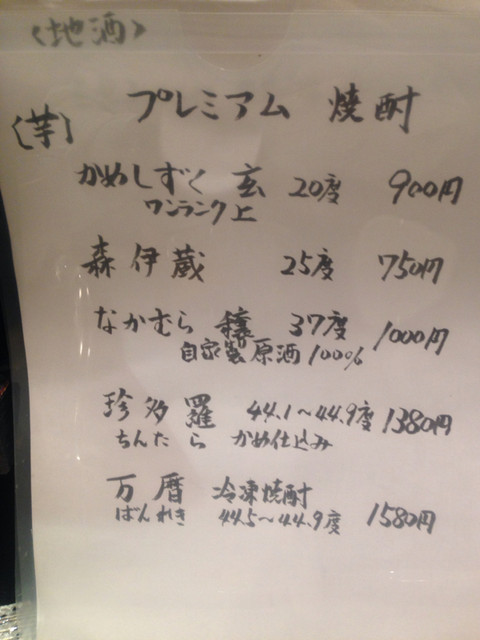 〈地酒〉
プレミアム 焼酎
〔芋〕
かめしずく 玄 20度 900円
ワンランク上
森伊蔵 25度 750円
なかむら 穣 37度 1000円
自家製原酒100%
珍多羅 44.1〜44.9度 1380円
ちんたら かめ仕込み
万暦 冷凍焼酎
ばんれき 44.5〜44.9度 1580円